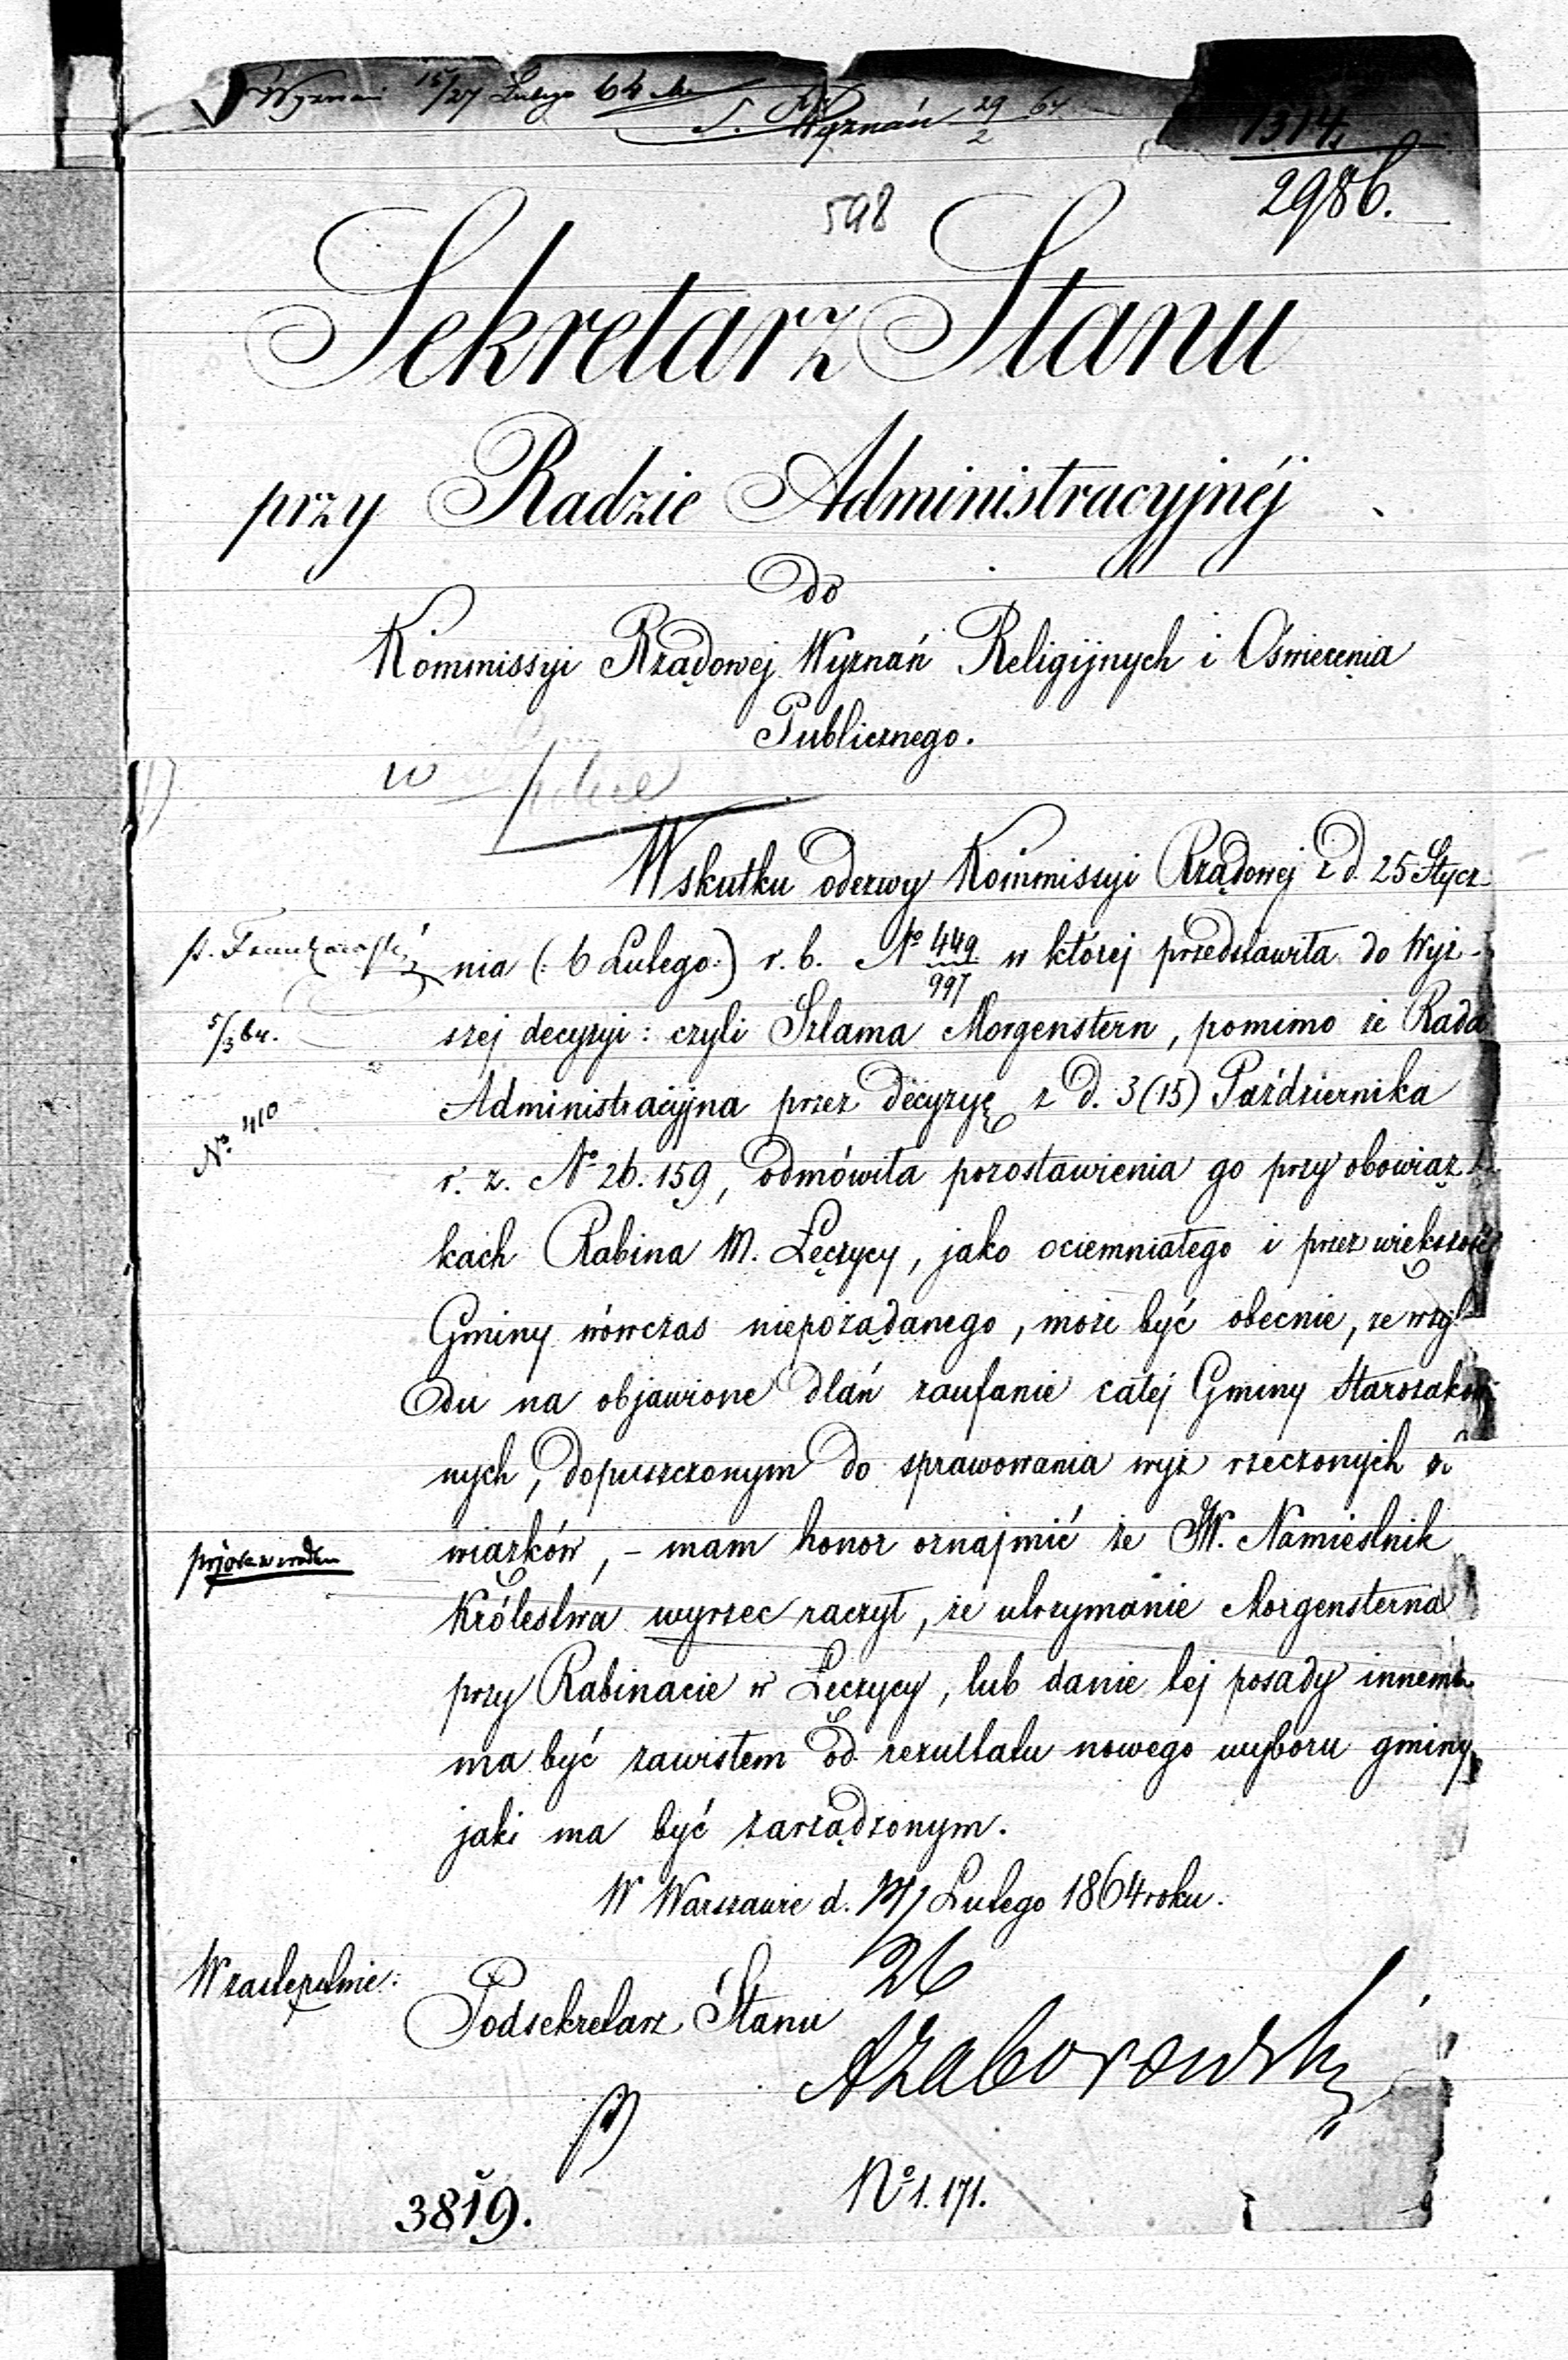 Wyznań 15/27 Lutego 64
Wyznań 29/2 64
1314
2986.
598
Sekretarz Stanu
przy Radzie Administracyjnéj
do
Kommissyi Rządowej Wyznań Religijnych i Oświecenia
Publicznego.
w
Wskutku odezwy Kommissyi Rządowej z d. 25 Stycz-
nia (: 6 Lutego:) r. b. Nº 449/997 w której przedstawiła do Wyż-
szej decyzyi: czyli Szlama Morgenstern, pomimo że Rada
Administracyjna przez decyzyę z d. 3 (15) Października
r. z. Nº 26.159, odmówiła pozostawienia go przy obowiąz-
kach Rabina M. Łęczycy, jako ociemniałego i przez większość
Gminy wówczas niepożądanego, może być obecnie, ze wzglę-
du na objawione dlań zaufanie całej Gminy Starozakon-
nych, dopuszczonym do sprawowania wyż rzeczonych o-
wiązków, – mam honor oznajmić że JW. Namiestnik
Królestwa wyrzec raczył, że utrzymanie Morgensterna
przy Rabinacie w Łęczycy, lub danie tej posady innemu
ma być zawisłem od rezultatu nowego wyboru gminy,
jaki ma być zarządzonym.
W Warszawie d. 14/26 Lutego 1864 roku.
5/3 64.
Nº 410
W zastępstwie:
Podsekretarz Stanu
AZaborowski
3819.
Nº 1.171.